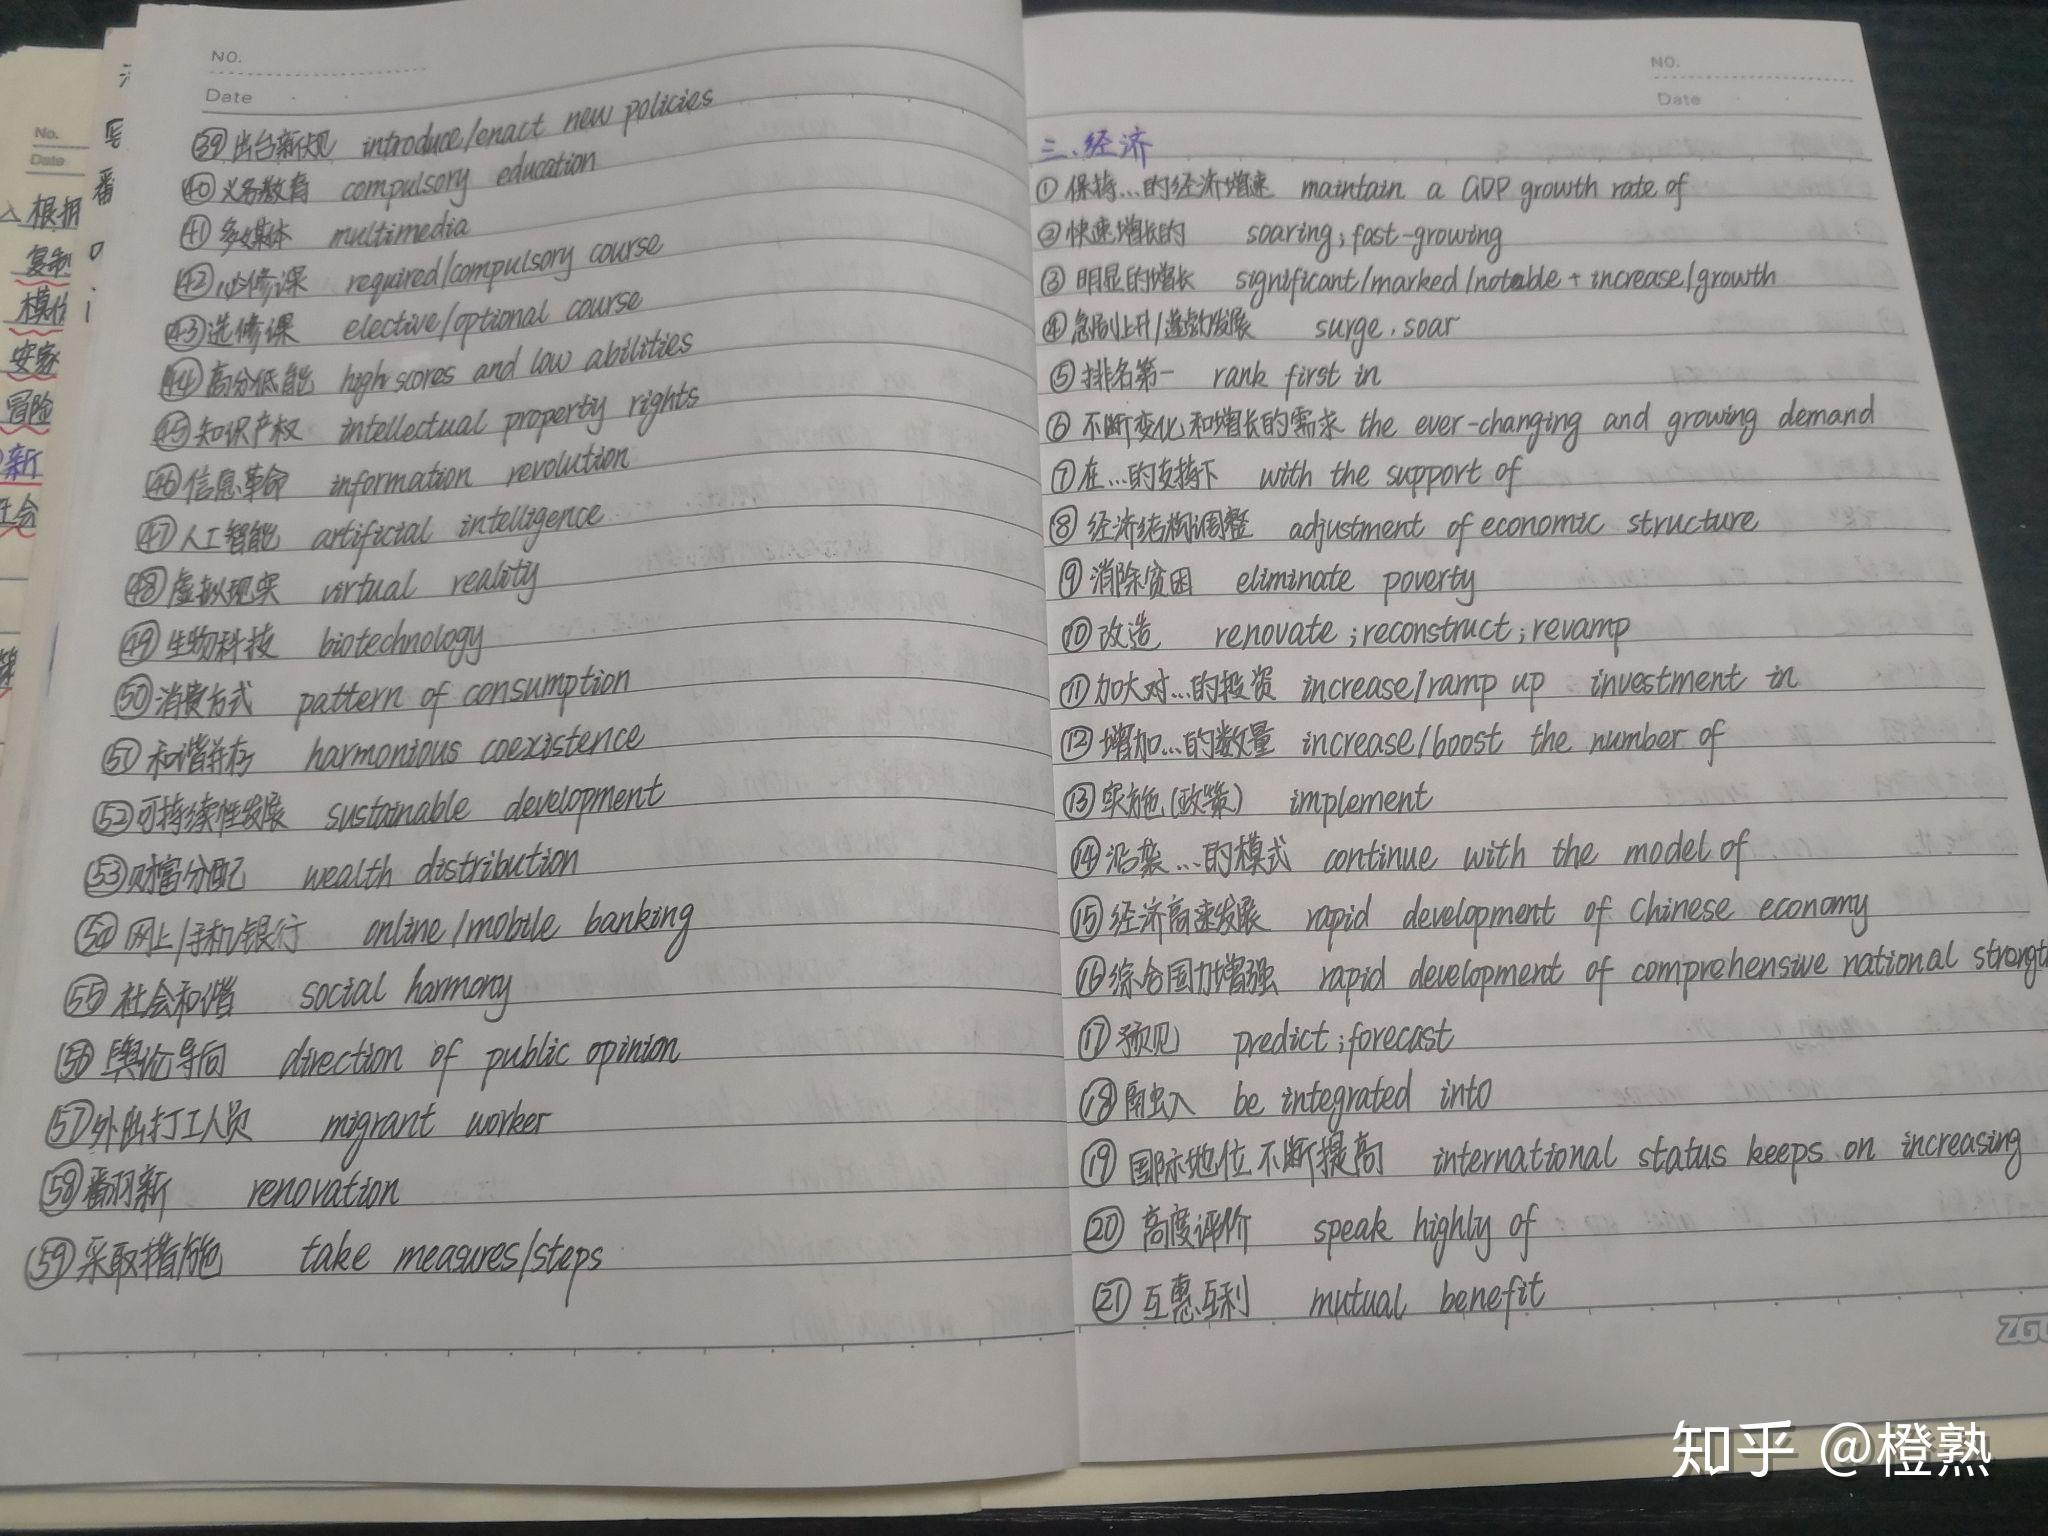 No.
Date
根据
复制
模仿
安家
冒险
新
社会
NO.
Date
㊴出台新规 introduce/enact new policies
㊵义务教育 compulsory education
㊶多媒体 multimedia
㊷必修课 required/compulsory course
㊸选修课 elective/optional course
㊹高分低能 high scores and low abilities
㊺知识产权 intellectual property rights
㊻信息革命 information revolution
㊼人工智能 artificial intelligence
㊽虚拟现实 virtual reality
㊾生物科技 biotechnology
㊿消费方式 pattern of consumption
(51)和谐并存 harmonious coexistence
(52)可持续性发展 sustainable development
(53)财富分配 wealth distribution
(54)网上/手机/银行 online/mobile banking
(55)社会和谐 social harmony
(56)舆论导向 direction of public opinion
(57)外出打工人员 migrant worker
(58)翻新 renovation
(59)采取措施 take measures/steps
NO.
Date
三.经济
①保持…的经济增速 maintain a GDP growth rate of
②快速增长的 soaring;fast-growing
③明显的增长 significant/marked/notable + increase/growth
④急剧上升/蓬勃发展 surge.soar
⑤排名第一 rank first in
⑥不断变化和增长的需求 the ever-changing and growing demand
⑦在…的支持下 with the support of
⑧经济结构调整 adjustment of economic structure
⑨消除贫困 eliminate poverty
⑩改造 renovate;reconstruct;revamp
⑪加大对…的投资 increase/ramp up investment in
⑫增加…的数量 increase/boost the number of
⑬实施(政策) implement
⑭沿袭…的模式 continue with the model of
⑮经济高速发展 rapid development of Chinese economy
⑯综合国力增强 rapid development of comprehensive national strengt
⑰预见 predict;forecast
⑱融入 be integrated into
⑲国际地位不断提高 international status keeps on increasing
⑳高度评价 speak highly of
㉑互惠互利 mutual benefit
知乎 @橙熟